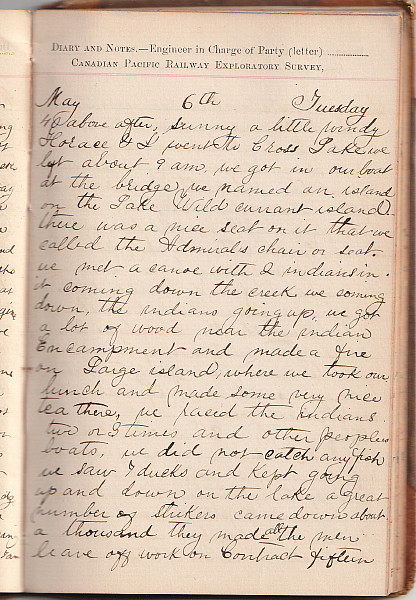 DIARY AND NOTES.—Engineer in Charge of Party (letter)
CANADIAN PACIFIC RAILWAY EXPLORATORY SURVEY,
May 6th Tuesday
46 above after, sunny a little windy
Horace & I went to Cross Lake we
left about 9 am, we got in our boat
at the bridge, we named an island
on the Lake Wild currant island
there was a nice seat on it that we
called the Admirals chair or seat.
we met a canoe with 2 indians in
it coming down the creek we coming
down, the indians going up, we got
a lot of wood near the indian
Encampment and made a fire
on Large island, where we took our
lunch and made some very nice
tea there, we raced the indians
two or 3 times and other peoples
boats, we did not catch any fish
we saw 7 ducks and kept going
up and down on the lake a great
number of strikers came down about
a thousand they made all the men
leave off work on Contract fifteen